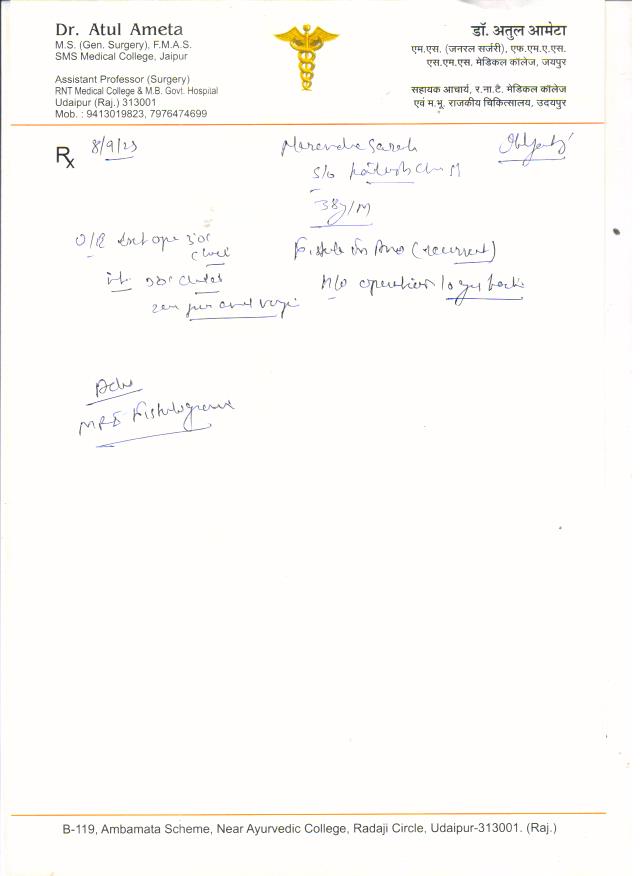 Dr. Atul Ameta
M.S. (Gen. Surgery), F.M.A.S.
SMS Medical College, Jaipur
Assistant Professor (Surgery)
RNT Medical College & M.B. Govt. Hospital
Udaipur (Raj.) 313001
Mob. : 9413019823, 7976474699
डॉ. अतुल आमेटा
एम.एस. (जनरल सर्जरी), एफ.एम.ए.एस.
एस.एम.एस. मेडिकल कॉलेज, जयपुर
सहायक आचार्य, र.ना.टै. मेडिकल कॉलेज
एवं म.भू. राजकीय चिकित्सालय, उदयपुर
Rx 8/9/23
S/o
38y/M
O/E ext ope 3 o'
Fistula in Ano (recurrent)
H/o operation 10 yr back
Adv
MRI Fistulogram
B-119, Ambamata Scheme, Near Ayurvedic College, Radaji Circle, Udaipur-313001. (Raj.)